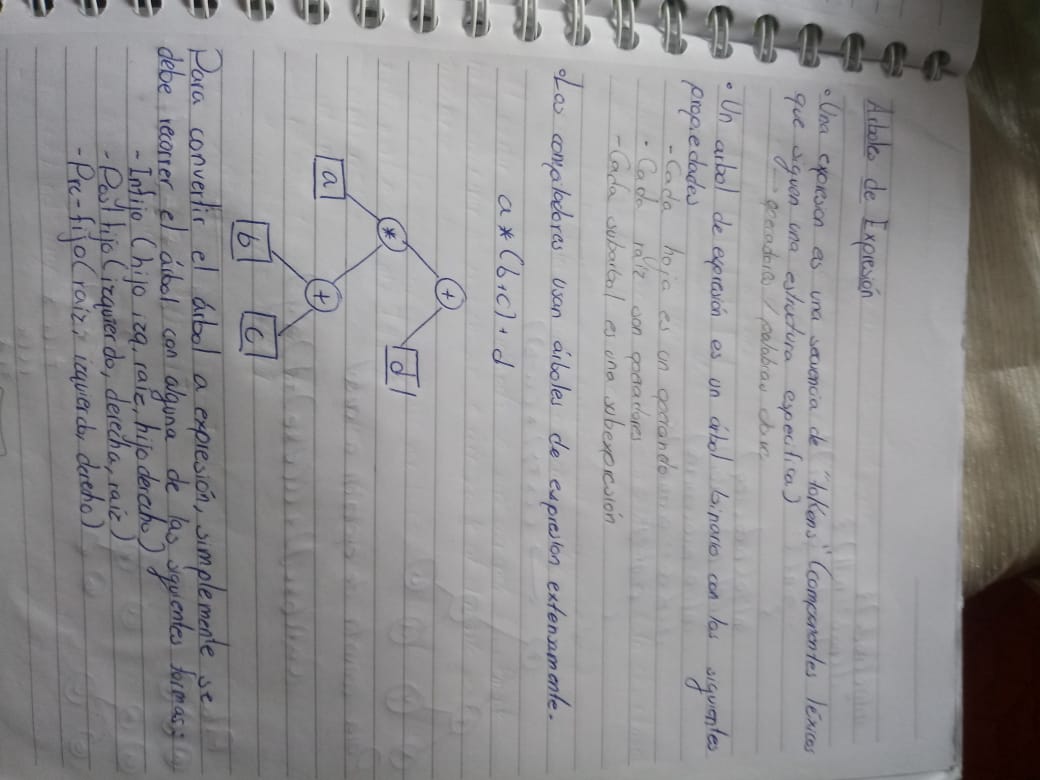 Arboles de Expresión
• Una expresión es una secuencia de "tokens" (componentes léxicos
que siguen una estructura específica)
→ operadores / palabras clave
• Un arbol de expresión es un árbol binario con las siguientes
propiedades
- Cada hoja es un operando
- Cada raíz son operadores
- Cada subárbol es una subexpresión
• Los compiladores usan árboles de expresión extensamente.
a * (b + c) + d
+
* d
a +
b c
Para convertir el árbol a expresión, simplemente se
debe recorrer el árbol con alguna de las siguientes formas:
- Infijo (hijo izq, raiz, hijo derecho)
- Postfijo (izquierdo, derecha, raiz)
- Pre-fijo (raiz, izquierdo, derecho)